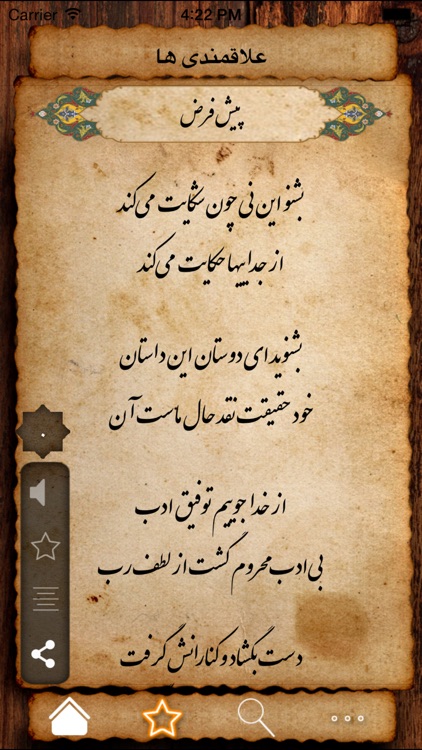 Carrier 4:22 PM
علاقمندی ها
پیش فرض
بشنو این نی چون شکایت می‌کند
از جداییها حکایت می‌کند
بشنوید ای دوستان این داستان
خود حقیقت نقد حال ماست آن
از خدا جوییم توفیق ادب
بی ادب محروم گشت از لطف رب
دست بگشاد و کنارانش گرفت